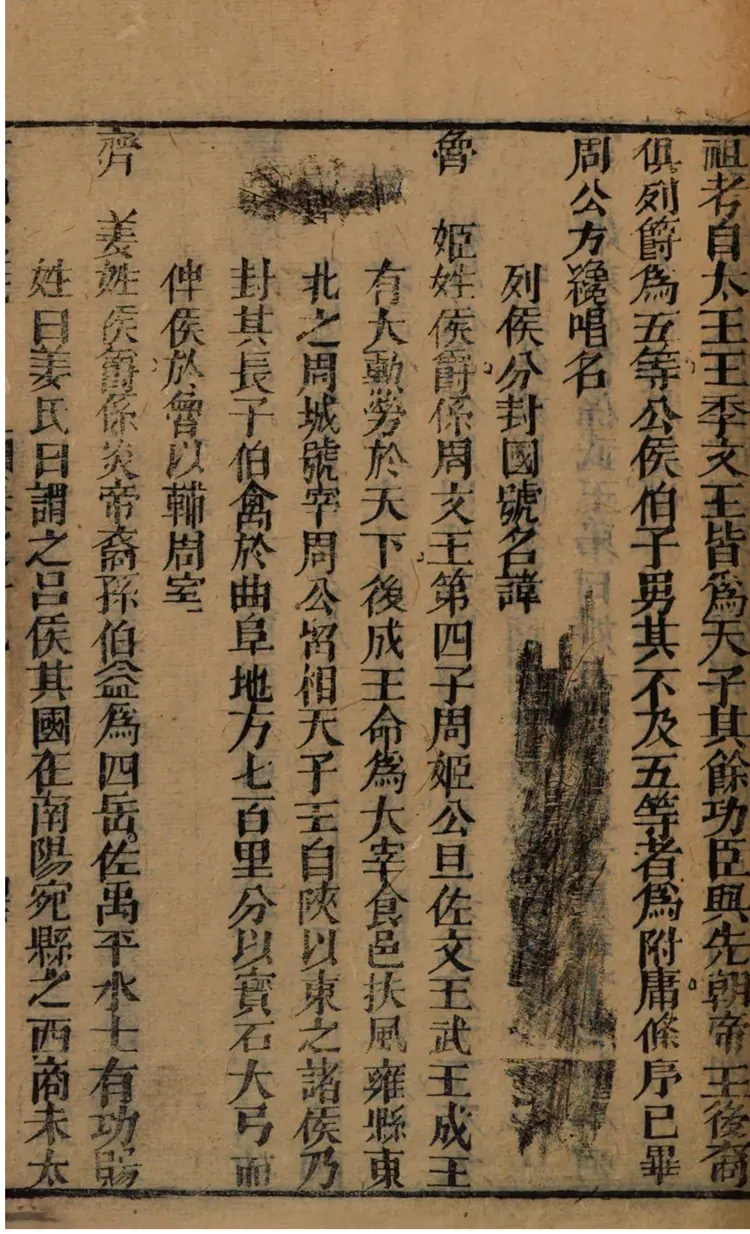 祖考自太王王季文王皆爲天子其餘功臣與先朝帝王後裔
俱列爵爲五等公侯伯子男其不及五等者爲附庸條序已畢
周公方纔唱名
列侯分封國號名諱
魯 姬姓侯爵係周文王第四子周姬公旦佐文王武王成王
有大勳勞於天下後成王命爲大宰食邑扶風雍縣東
北之周城號宰周公留相天子主自陝以東之諸侯乃
封其長子伯禽於曲阜地方七百里分以寶石大弓而
俾侯於魯以輔周室
齊 姜姓侯爵係炎帝裔孫伯益爲四岳佐禹平水土有功賜
姓曰姜氏曰謂之呂侯其國在南陽宛縣之西商末太